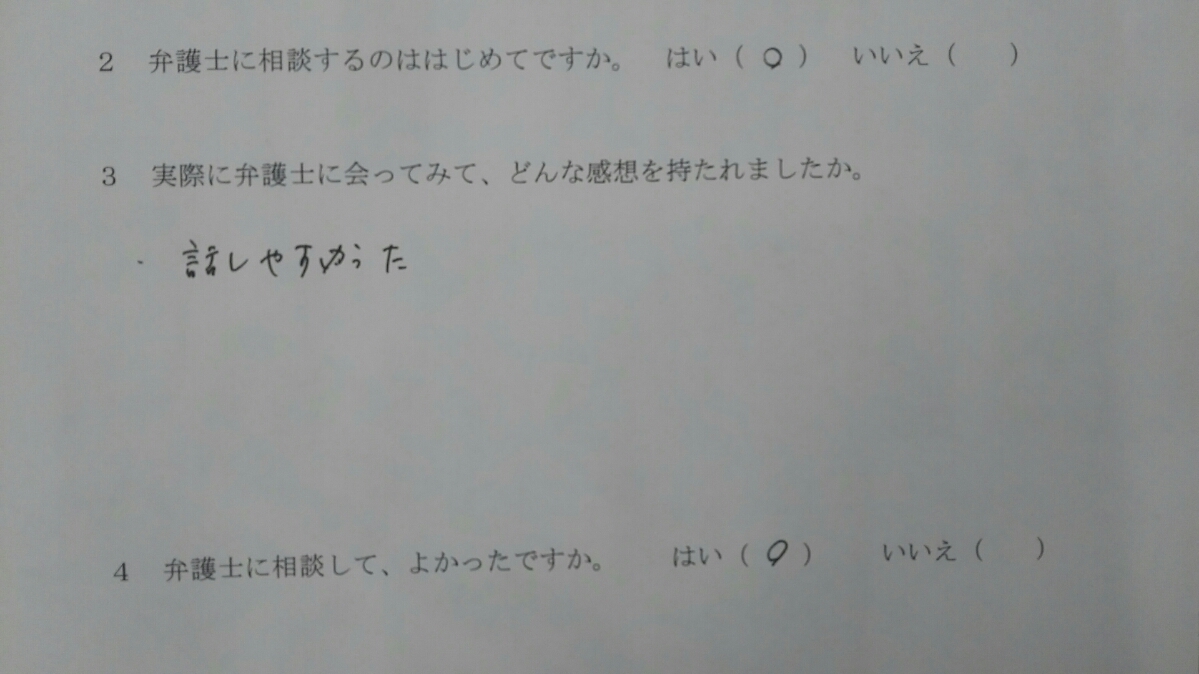 2 弁護士に相談するのははじめてですか。 はい（ ○ ） いいえ（ ）
3 実際に弁護士に会ってみて、どんな感想を持たれましたか。
・ 話しやすかった
4 弁護士に相談して、よかったですか。 はい（ ○ ） いいえ（ ）